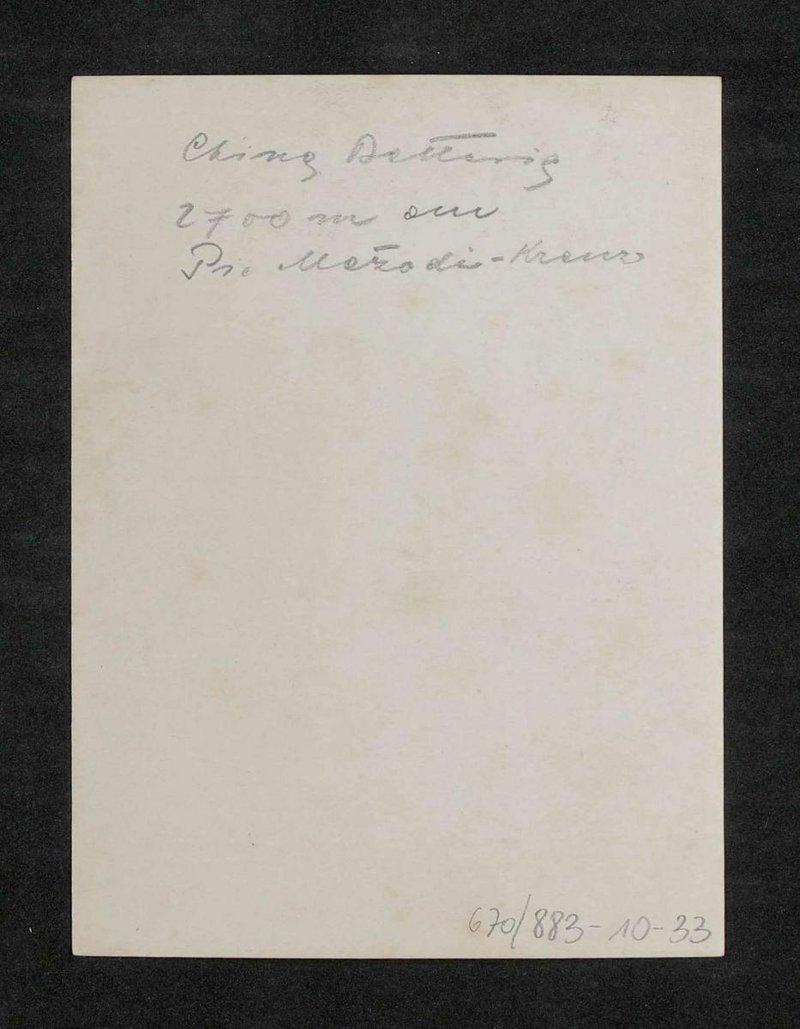 China Batterie
2700 m am
Pr. Mežodi-Kreuz
670/883-10-33